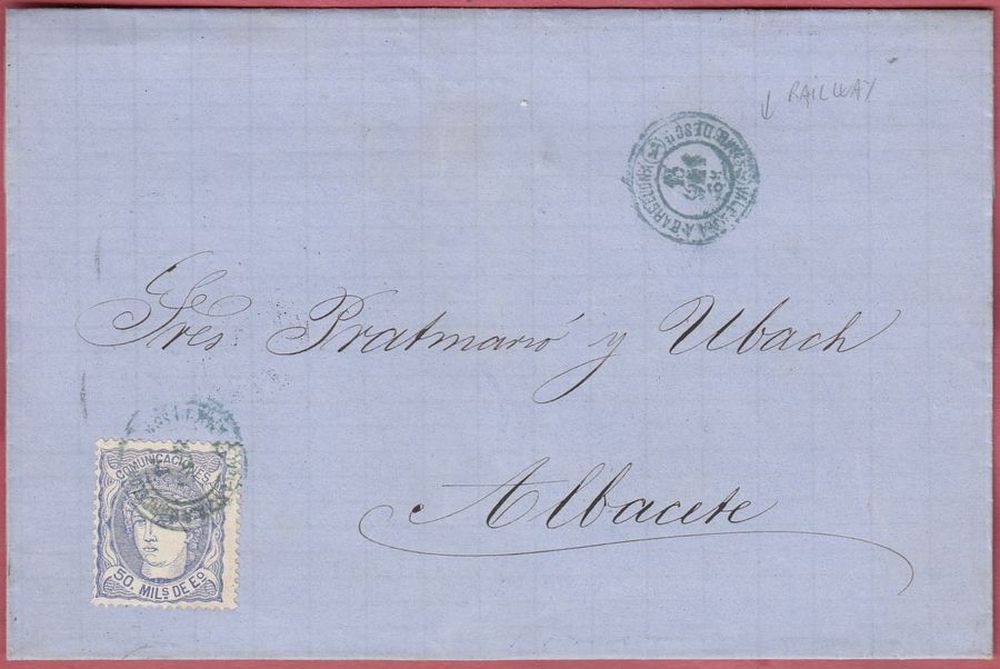 RAILWAY
VALENCIA A BARCELONA DESC
Sres Pratmarsó y Ubach
Albacete
COMUNICACIONES
50. MILS DE Eo